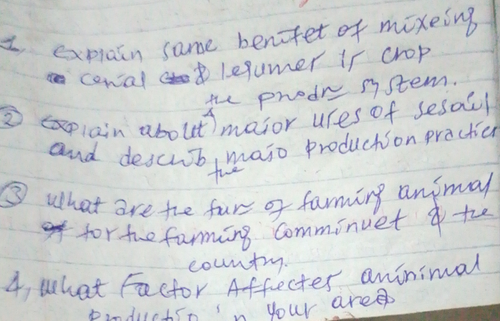 1 explain same benifet of mixeing
cerial & legumer Ir crop
the prodn system.
② explain abolt major ures of sesail
and describ the majo production practices
③ what are the fun of farming animal
for the farming comminuet & the
country
4, what Factor Affectes aninimal
productio in your area